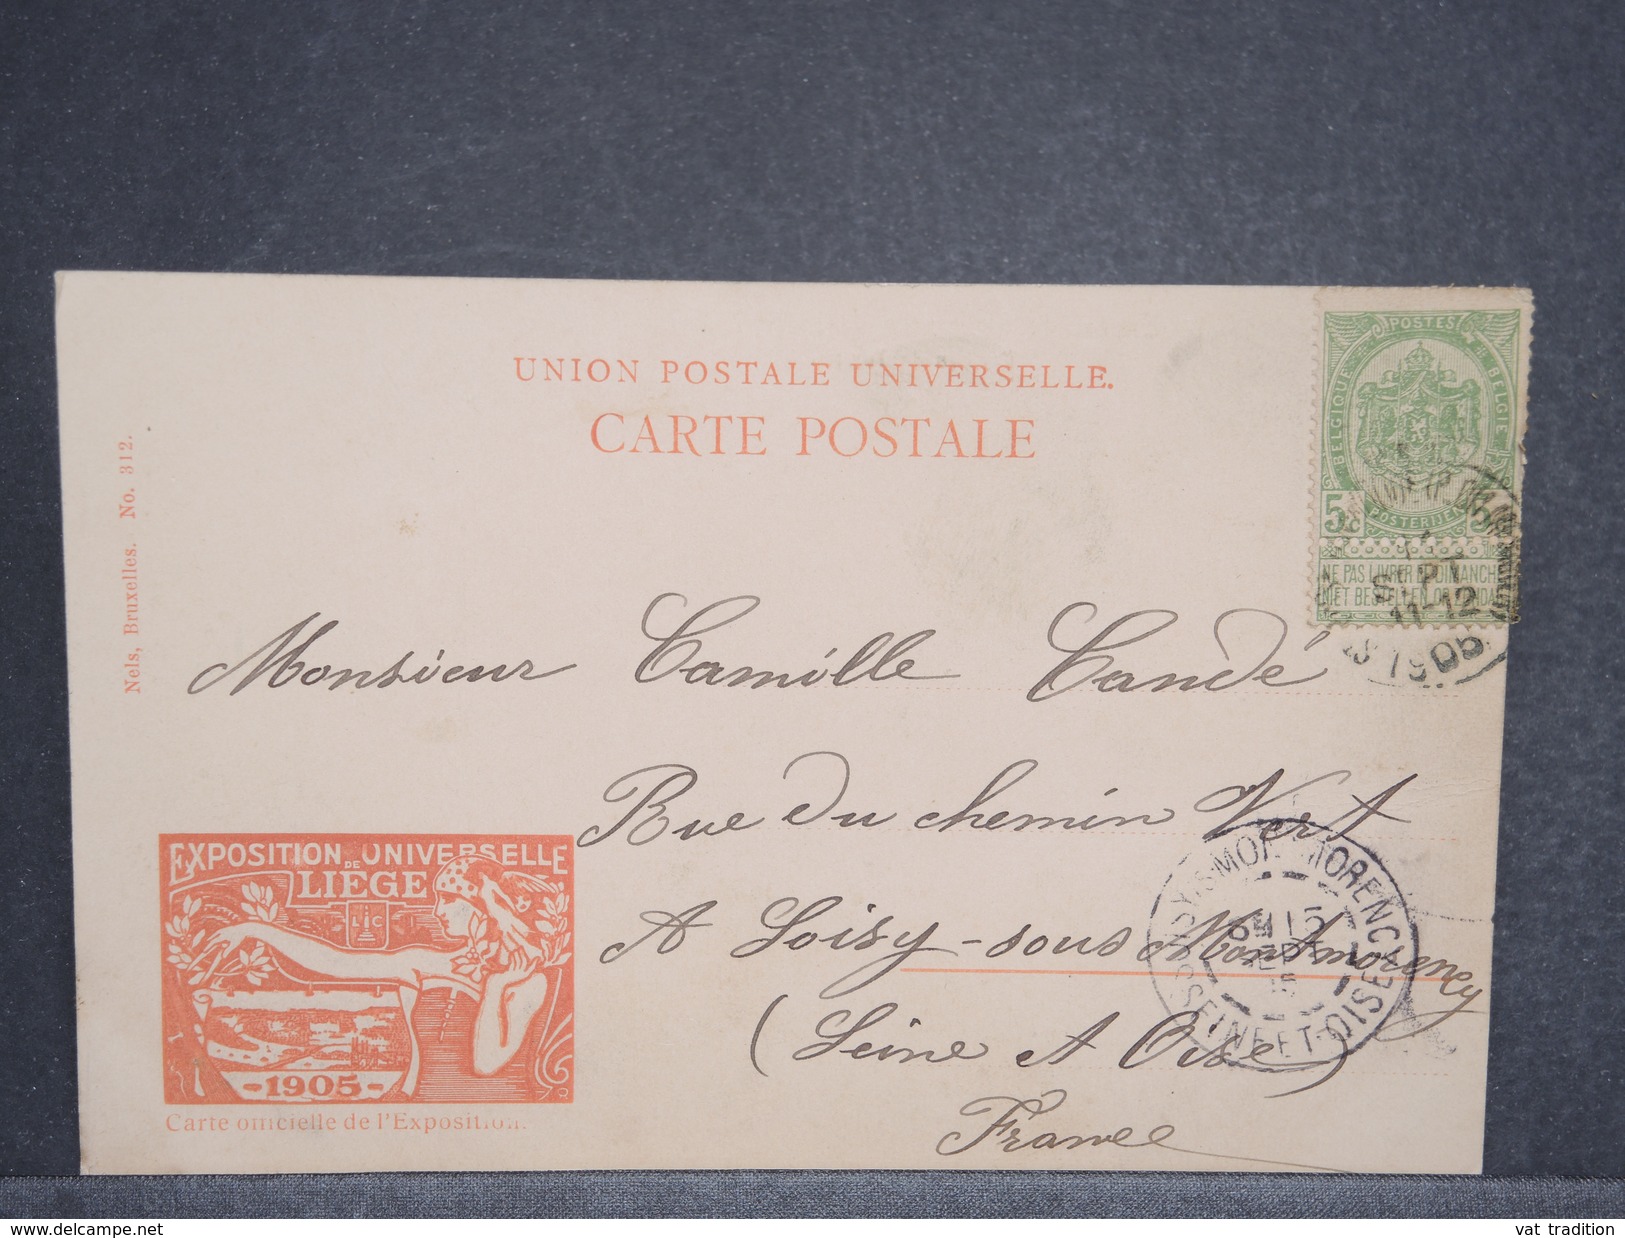 UNION POSTALE UNIVERSELLE.
CARTE POSTALE
Nels, Bruxelles. No. 312.
POSTES
BELGIQUE
BELGIE
5
POSTERIJEN
5
NE PAS LIVRER LE DIMANCHE
NIET BESTELLEN OP ZONDAG
SEPT
11-12
1905
Monsieur Camille Candé
Rue du chemin Vert
A Soisy-sous Montmorency
(Seine et Oise)
France
SOISY-S-MONTMORENCY
SEINE-ET-OISE
15
SEPT
EXPOSITION UNIVERSELLE
DE
LIÈGE
1905
Carte officielle de l'Exposition.
delcampe.net
vat tradition